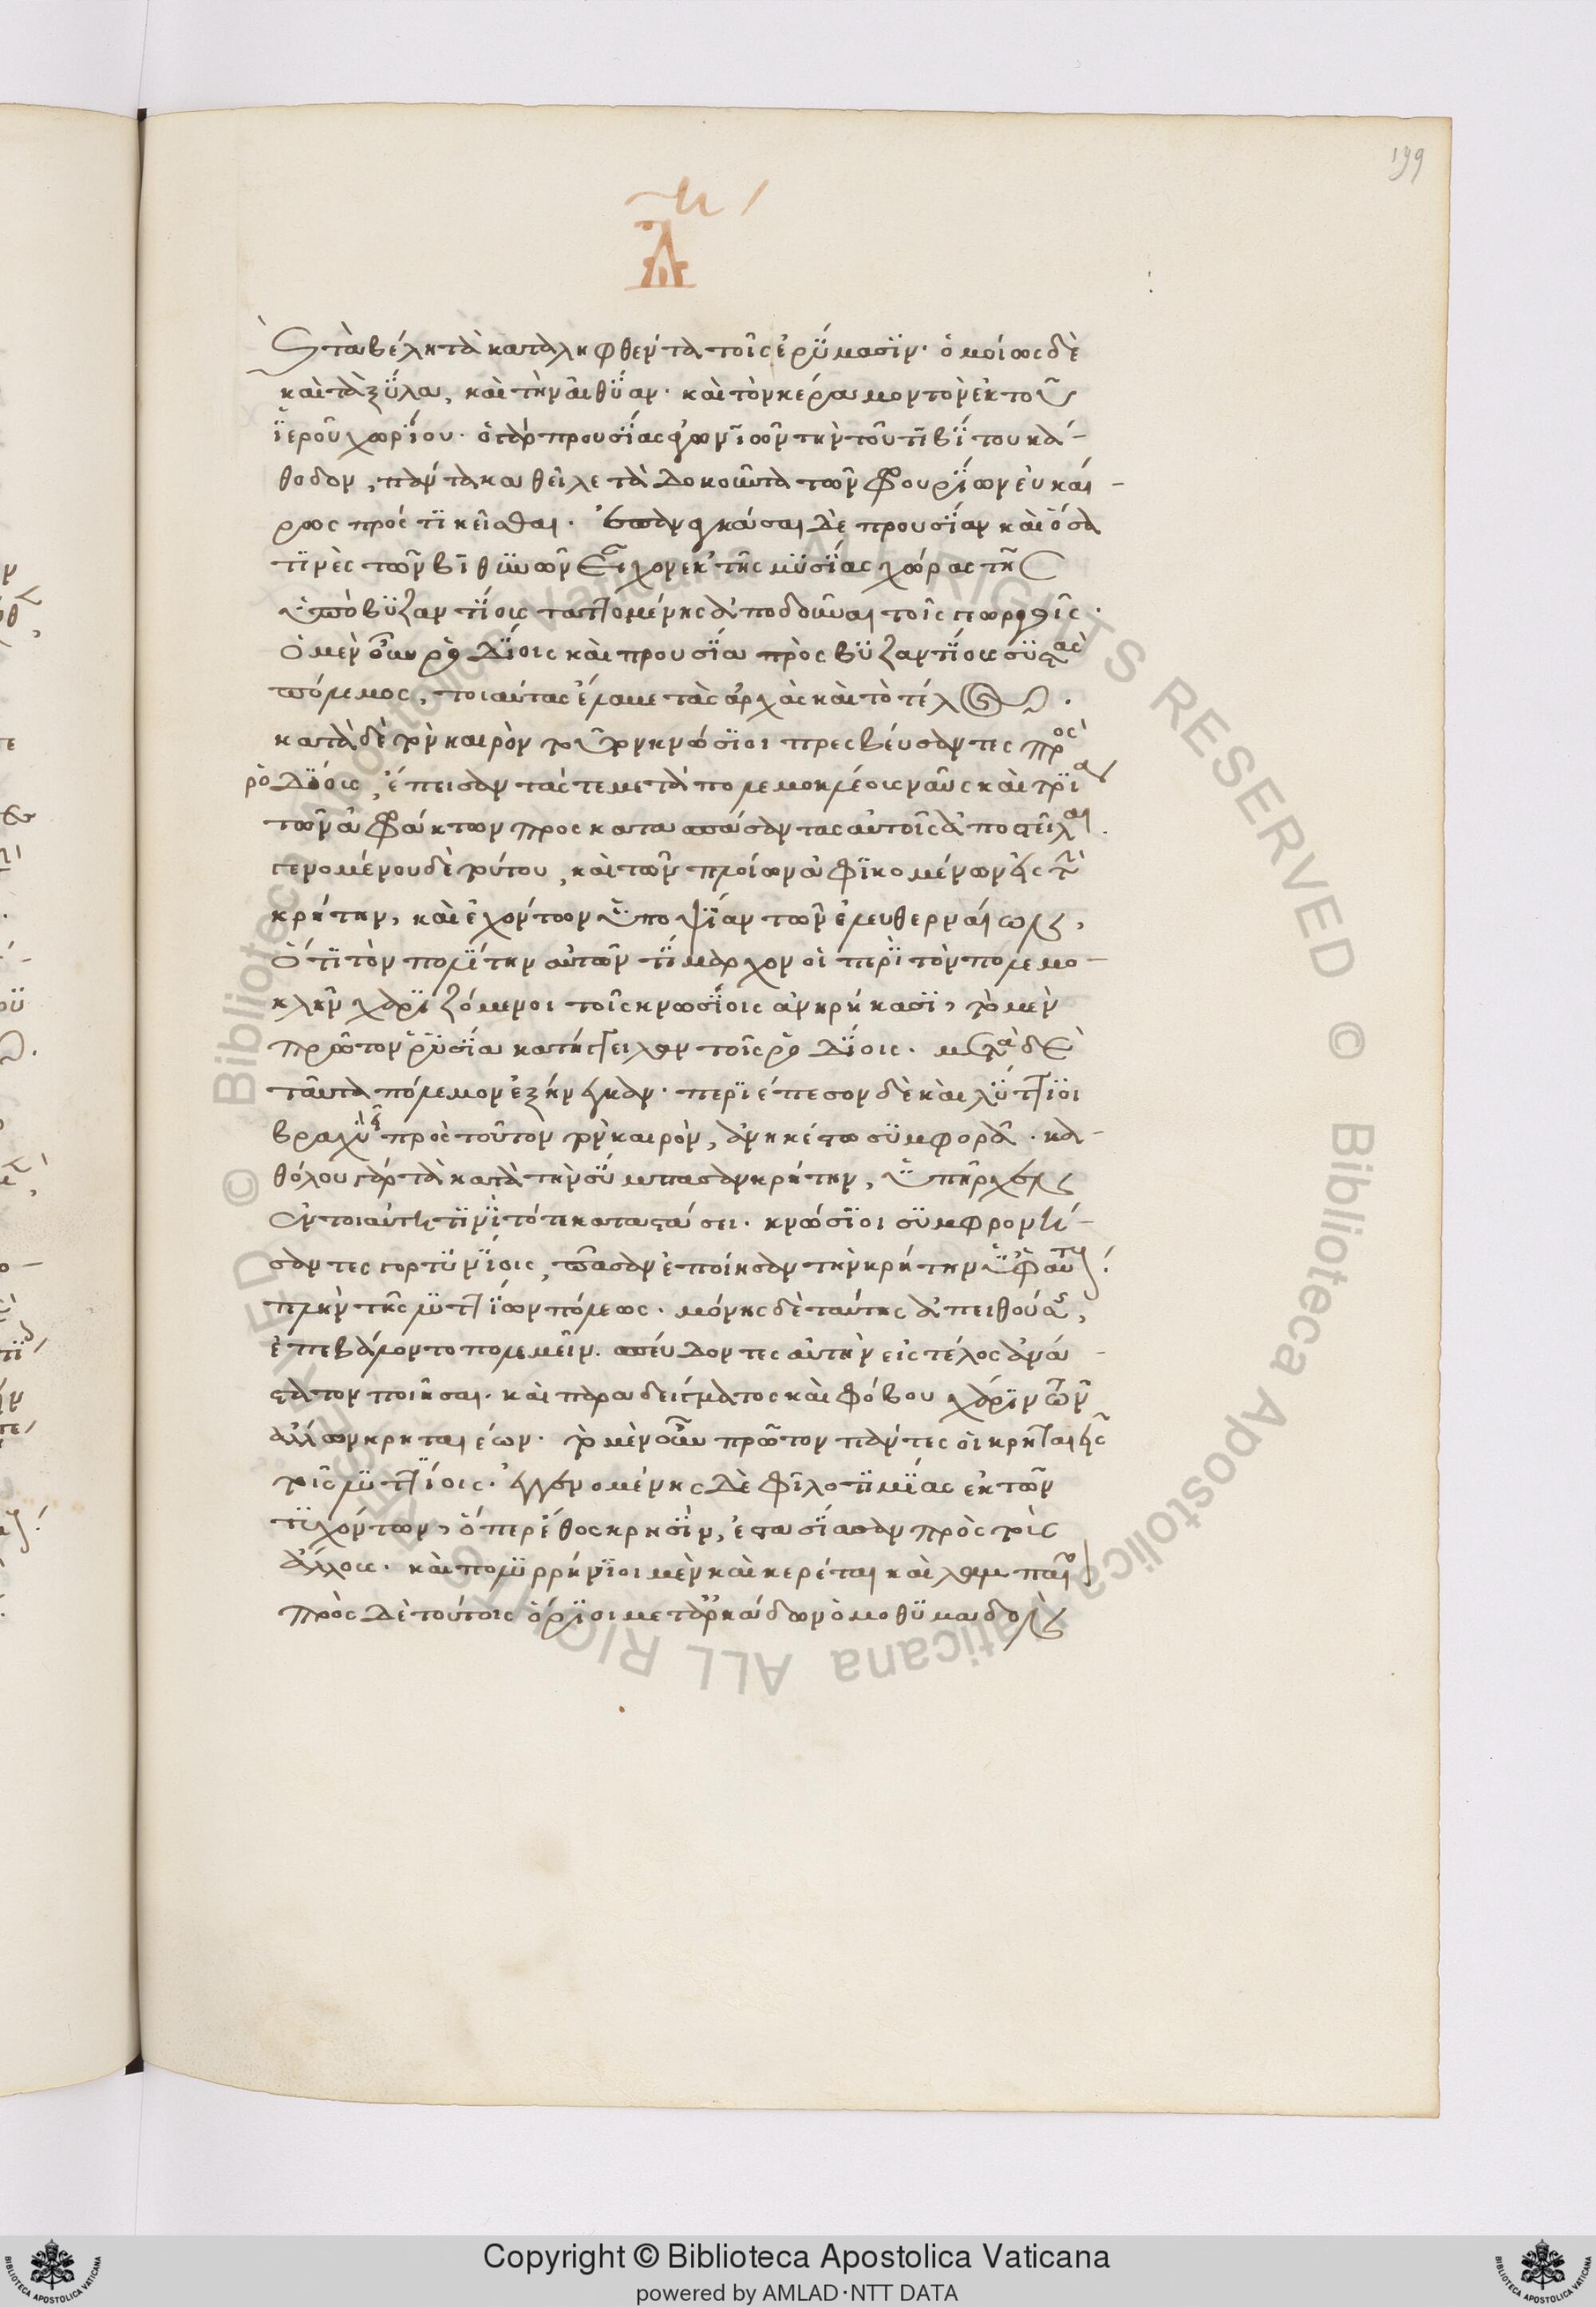 199
καὶ τὰ βέλη τὰ καταληφθέντα τοῖς ἐρΰμασϊν· ὁμοίως δὲ
καὶ τὰ ξΰλα, καὶ τὴν λιθΰαν· καὶ τὸν κέραμον τὸν ἐκ τοῦ
ϊεροῦ χωρΐου· ὁ γὰρ προυσΐας ἀγωνϊῶν τὴν τοῦ τϊβΐτου κά-
θοδον, πάντα καθεῖλε τὰ δοκοῦντα τῶν φρουρΐων εὐκαί-
ρως πρός τϊ κεῖσθαι· ἐπαναγκάσαι δὲ προυσΐαν καὶ ὅσα
τϊνὲς τῶν βϊθϋνῶν εἶχον ἐκ τῆς μϋσΐας χώρας τῆς
ὑπὸ βϋζαντΐους ταττομένης ἀποδοῦναι τοῖς γεωργοῖς·
ὁ μὲν οὖν ῥοδΐοις καὶ προυσΐα πρὸς βϋζαντΐους συστὰς
πόλεμος, τοιαύτας ἔλαβε τὰς ἀρχὰς καὶ τὸ τέλος·
κατὰ δὲ τὸν καιρὸν τοῦτον κνώσϊοι πρεσβεύσαντες πρὸς
ῥοδΐους, ἔπεισαν τάς τε μετὰ πολεμοκλέους ναῦς καὶ τρΐα
τῶν ἀφράκτων προσκατασπάσαντας αὐτοῖς ἀποστεῖλαι·
γενομένου δὲ τούτου, καὶ τῶν πλοίων ἀφϊκομένων εἰς τὴν
κρήτην, καὶ ἐχόντων ὑποψΐαν τῶν ἐλευθερναίων,
ὅτϊ τὸν πολΐτην αὐτῶν τΐμαρχον οἱ περὶ τὸν πολεμο-
κλῆν χαρϊζόμενοι τοῖς κνωσΐοις ἀνῃρήκασϊ, τὸ μὲν
πρῶτον ῥύσϊα κατήγγειλαν τοῖς ῥοδΐοις· μετὰ δὲ
ταῦτα πόλεμον ἐξήνεγκαν· περϊέπεσον δὲ καὶ λΰττϊοι
βραχὺ πρὸς τοῦτον τὸν καιρὸν, ἀνηκέστω συμφορᾶ· κα-
θόλου γὰρ τὰ κατὰ τὴν σΰμπασαν κρήτην, ὑπῆρχεν
ἐν τοιαύτη τϊνὶ τότε καταστάσει· κνώσϊοι συμφρονή-
σαντες γορτυνΐοις, πᾶσαν ἐποίησαν τὴν κρήτην ὑφ' αὑτούς·
πλὴν τῆς λυττΐων πόλεως· μόνης δὲ ταύτης ἀπειθούσης,
ἐπεβάλοντο πολεμεῖν· σπεύδοντες αὐτὴν εἰς τέλος ἀνά-
στατον ποιῆσαι· καὶ παραδείγματος καὶ φόβου χάρϊν τῶν
ἄλλων κρηταιέων· τὸ μὲν οὖν πρῶτον πάντες οἱ κρηταιεῖς
τοῖς λυττΐοις· ἐγγενομένης δὲ φϊλοτϊμΐας ἐκ τῶν
τυχόντων, ὅπερ ἔθος κρησΐν, ἐστασΐασαν πρὸς τοὺς
ἄλλους· καὶ πολυρρήνϊοι μὲν καὶ κερέται καὶ λαμπαῖοι
πρὸς δὲ τούτοις ὅρϊοι μετ' ἀρκάδων ὁμοθυμαδὸν
Copyright © Biblioteca Apostolica Vaticana
powered by AMLAD·NTT DATA